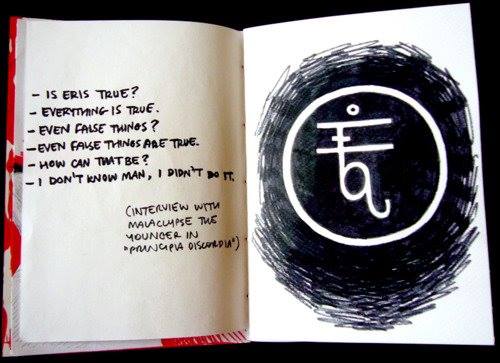 - IS ERIS TRUE?
- EVERYTHING IS TRUE.
- EVEN FALSE THINGS?
- EVEN FALSE THINGS ARE TRUE.
- HOW CAN THAT BE?
- I DON'T KNOW MAN, I DIDN'T DO IT.
(INTERVIEW WITH
MALACLYPSE THE
YOUNGER IN
"PRINCIPIA DISCORDIA")